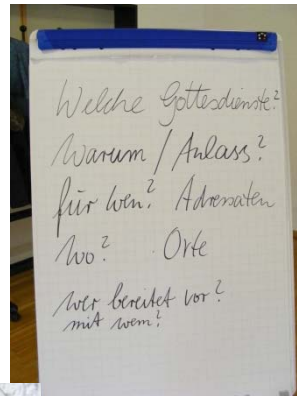 Welche Gottesdienste?
Warum / Anlass?
für wen? Adressaten
Wo? Orte
wer bereitet vor?
mit wem?